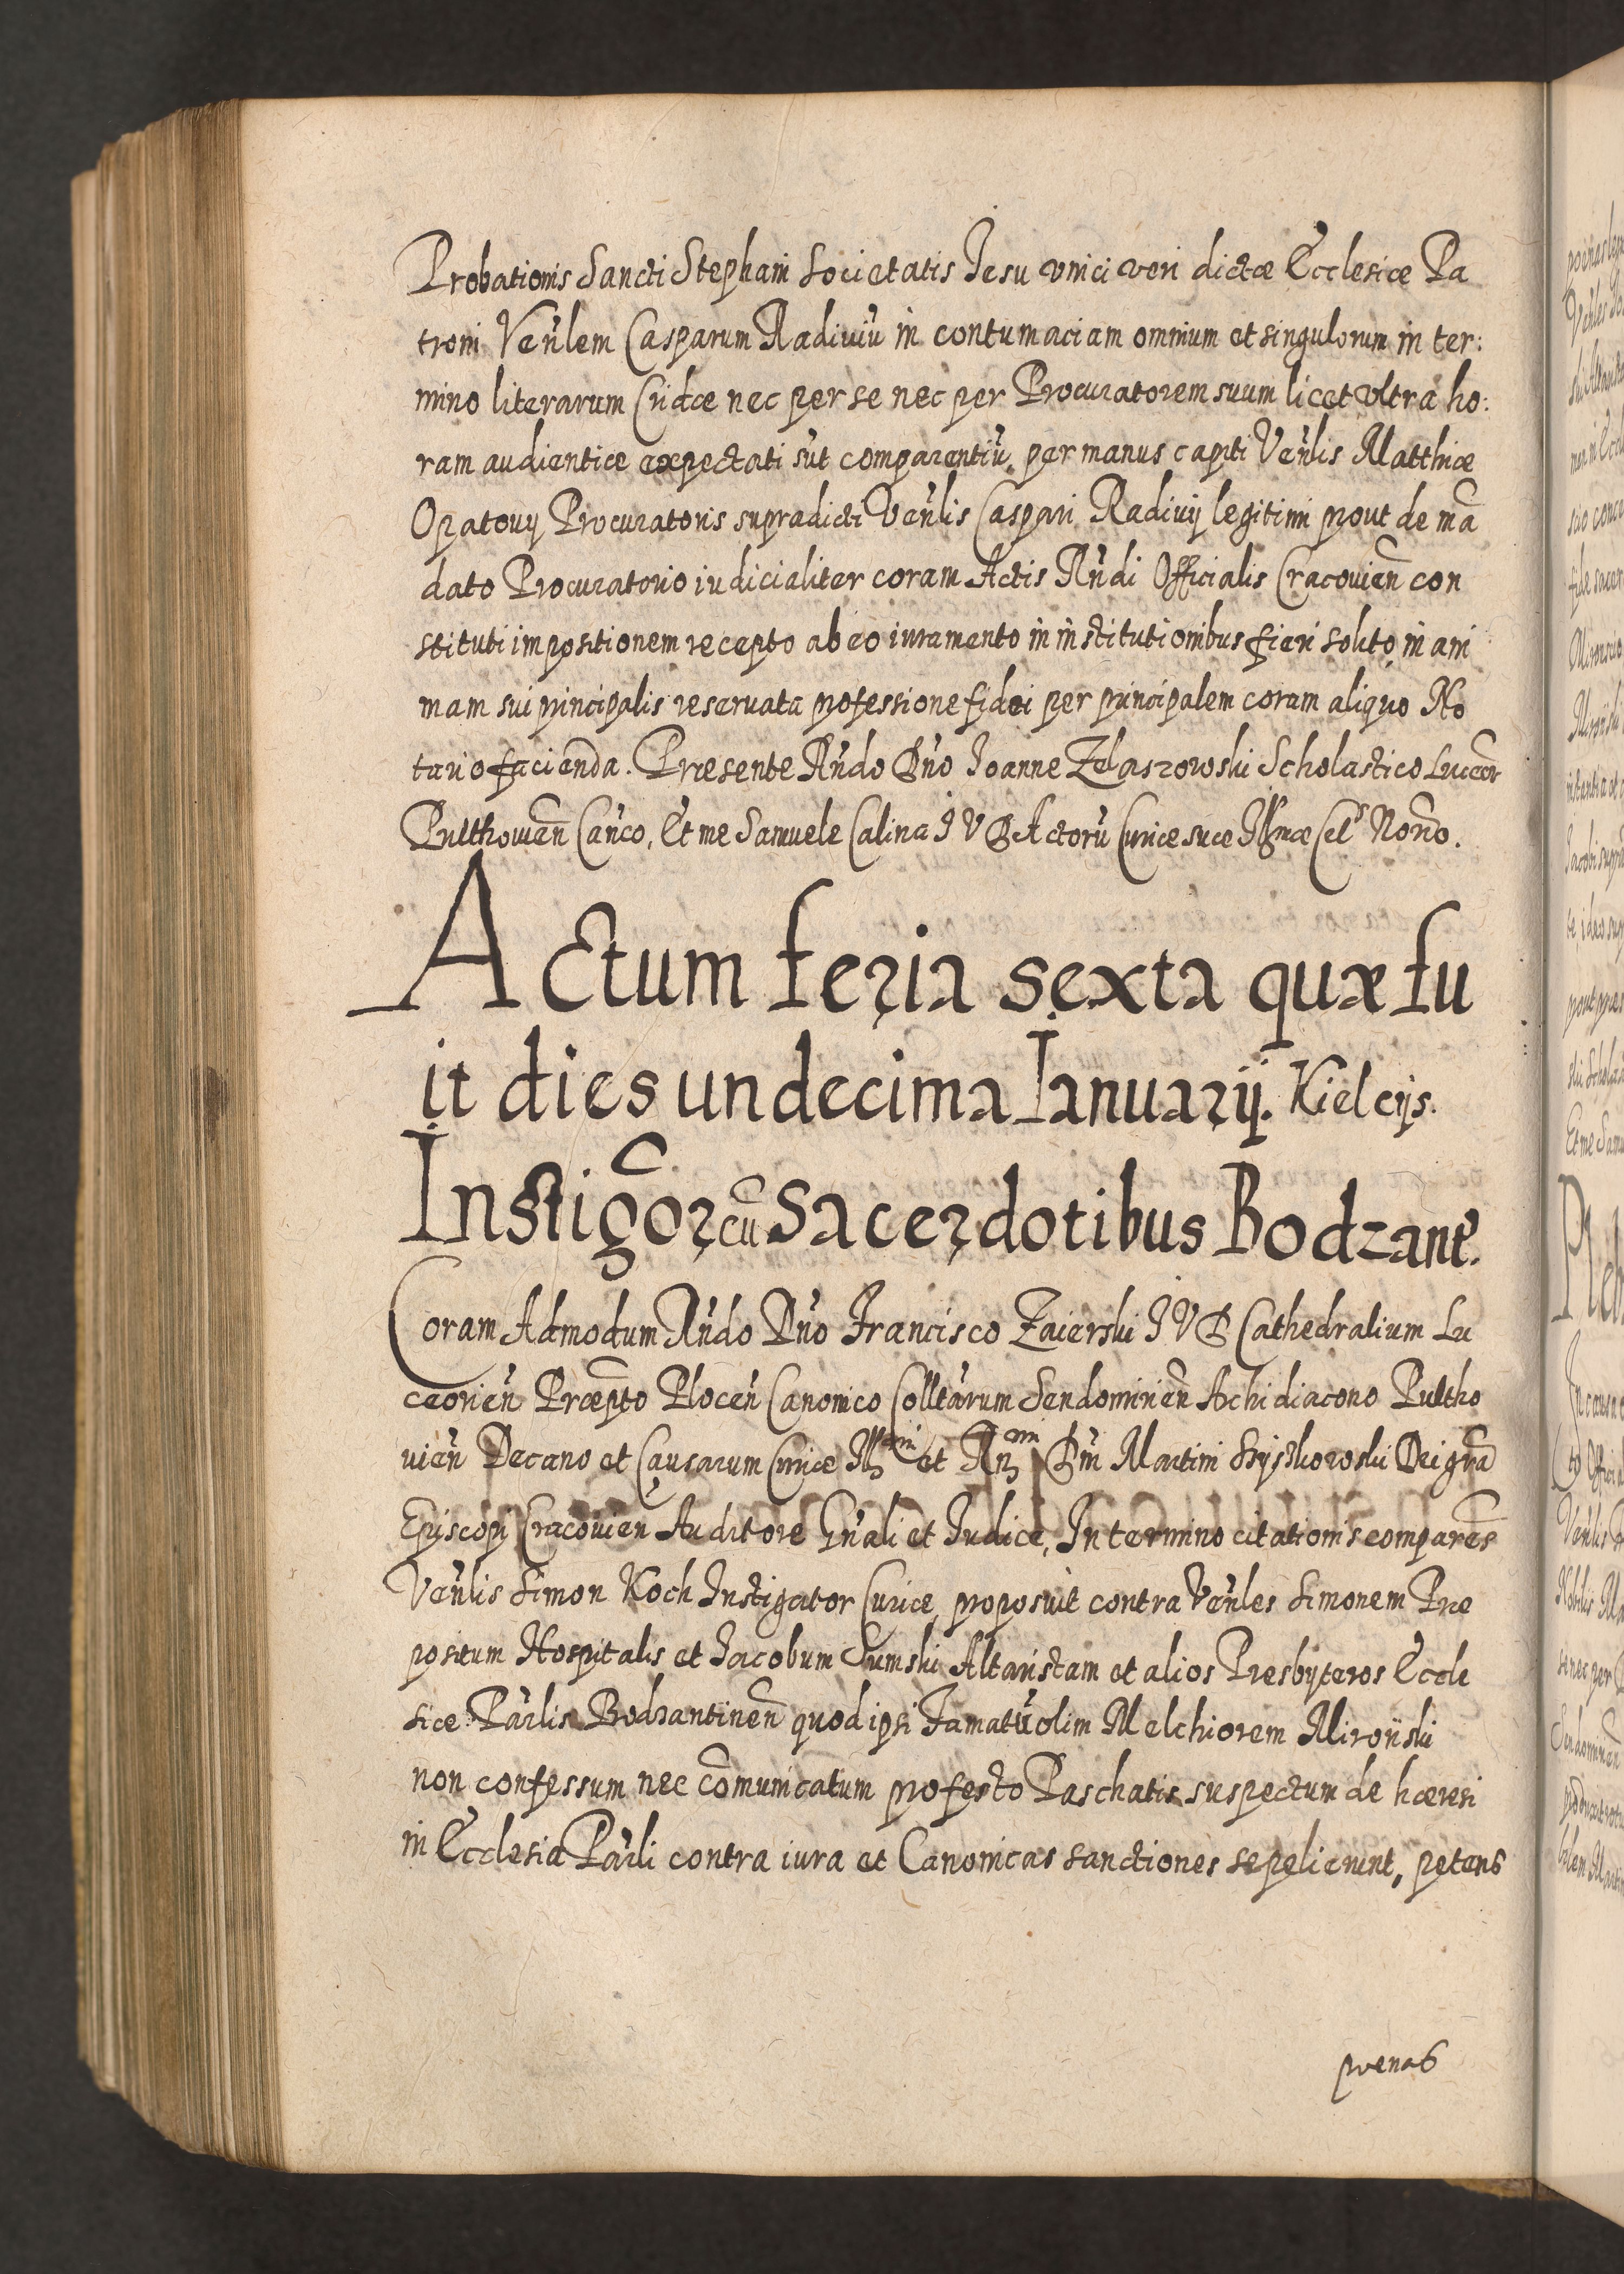 Probationis Sancti Stephani Societatis Iesu vnici veri dictæ Ecclesiæ Pa
troni Venlem Casparum Radiviu in contumaciam omnium et singulorum in ter:
mino literarum Cridæ nec per se nec per Procuratorem suum licet vltra ho:
ram audientiæ expectati sut comparentiu, per manus capiti Venlis Matthiæ
Opatovy Procuratoris supradicti Venlis Caspari Radivij legitimi prout de mā
dato Procuratorio iudicialiter coram Actis Rndi Officialis Cracovien con
stituti impositionem recepto ab eo iuramento in institutionibus fieri solito, in ani
mam sui principalis reservata professione fidei per principalem coram aliquo No
tario facienda. Præsente Rndo Dno Ioanne Zelaszowski Scholastico Luceor
Pulthovien Canco, Et me Samuele Calina I V D Actoru Curiæ suæ Illmæ Cels Norio.
Actum feria sexta quæ fu
it dies undecima Ianuarij. Kielcijs.
Instigor cu Sacerdotibus Bodzant.
Coram Admodum Rndo Dno Francisco Zaierski I V D Cathedralium Lu
ceorien Præpto Plocen Canonico Colltarum Sendomirien Archidiacono Pultho
vien Decano et Causarum Curiæ Illmi et Rmi Dni Martini Szyszkowski Dei gra
Episcopi Cracovien Auditore Gnali et Iudice, In termino citationis comparens
Venlis Simon Koch Instigator Curiæ, proposuit contra Venles Simonem Præ
positum Hospitalis et Iacobum Sumski Altaristam et alios Presbyteros Eccle
siæ Parlis Bodzantinen quod ipsi Famatu olim Melchiorem Mironski
non confessum nec comunicatum pro festo Paschatis suspectum de hæresi
in Ecclesia Parli contra iura et Canonicas sanctiones sepelierunt, petens
pœnas